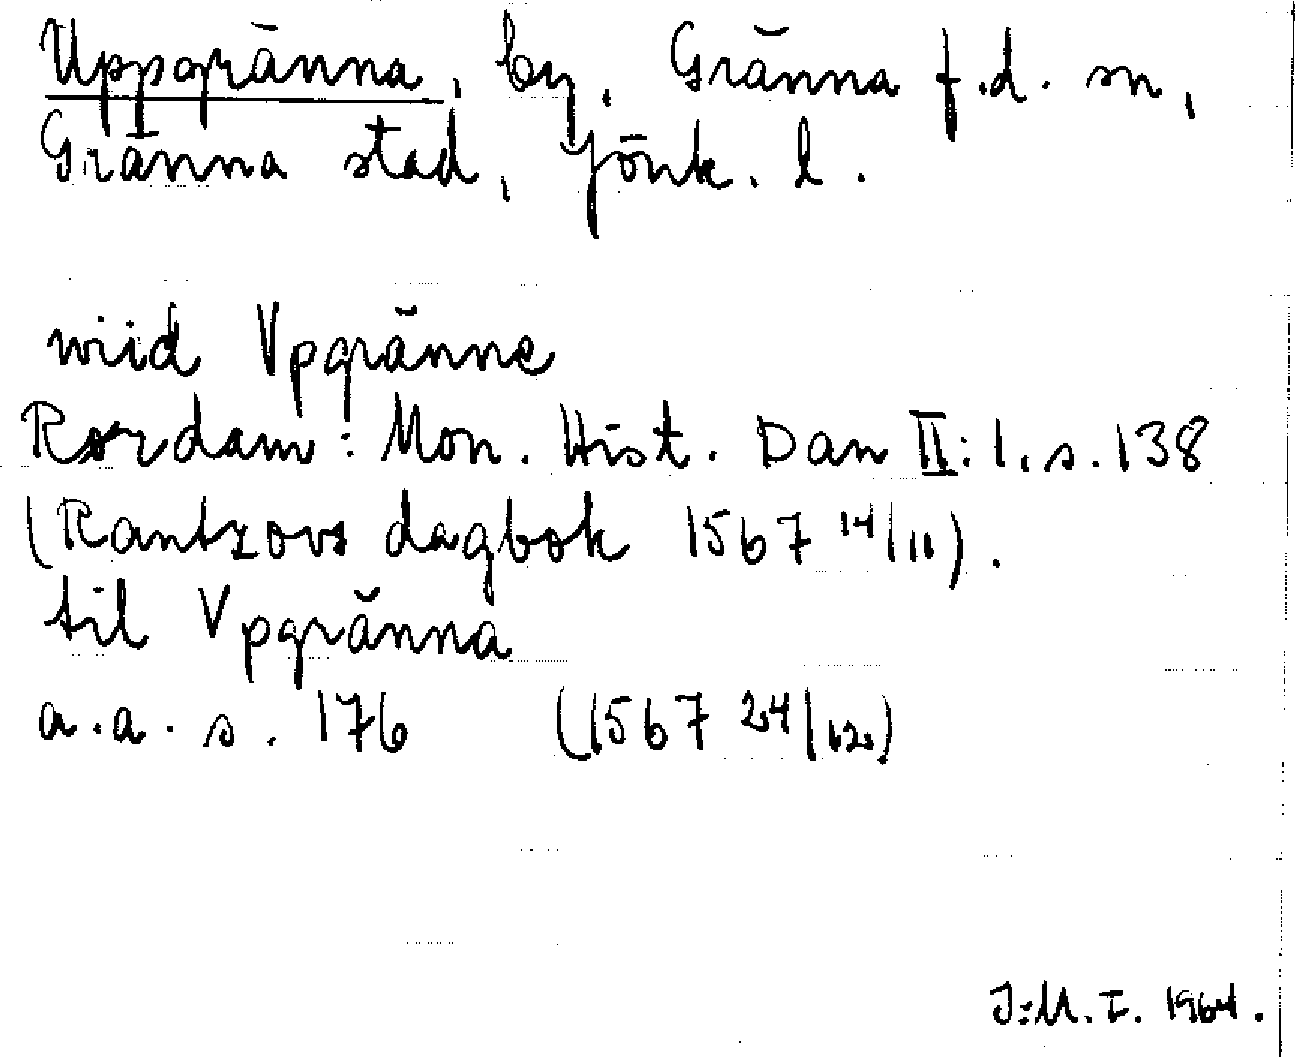 Uppgränna, by, Gränna f.d. sn,
Gränna stad, Jönk. l.
wiid Vpgränne
Rørdam: Mon. Hist. Dan II:1, s. 138
(Rantzovs dagbok 1567 14/11).
til Vpgränna
a.a. s. 176 (1567 24/12)
J:M. T. 1964.